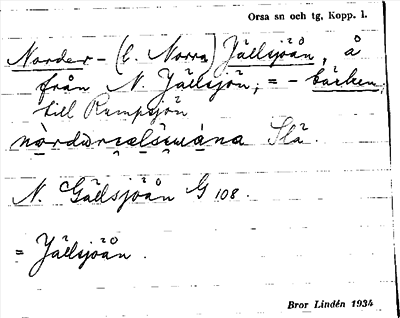 Orsa sn och tg, Kopp. l.
Norder- (l. Norra) Jällsjöån, å
från N. Jällsjön; = -bäcken,
till Rumpsjön
Slä.
N. Gällsjöån G 108.
= Jällsjöån.
Bror Lindén 1934